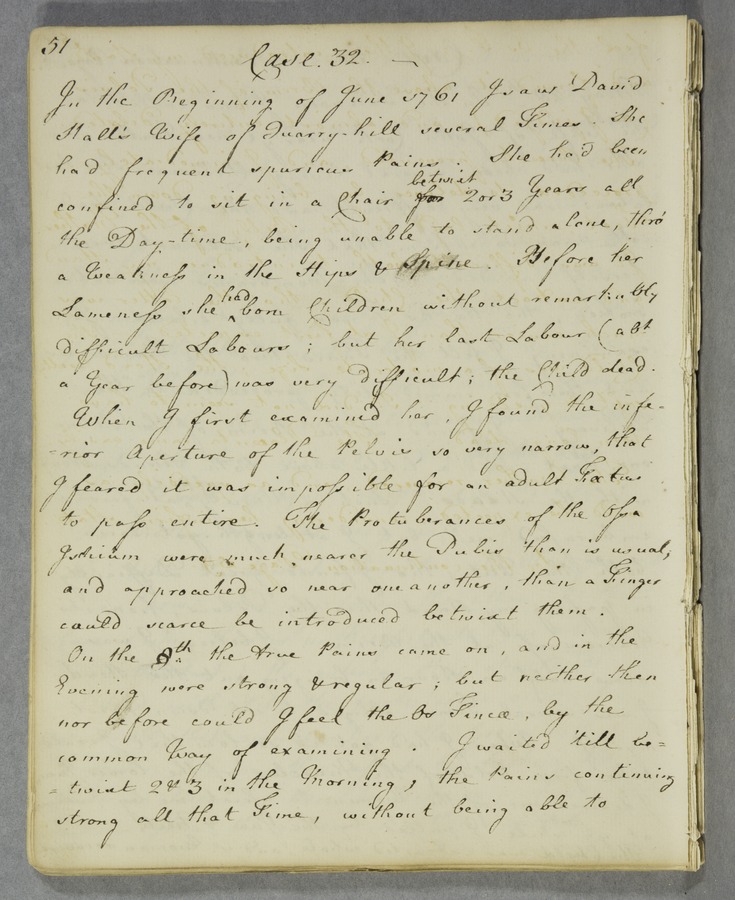 51
Case. 32. —
In the Beginning of June 1761 I saw David
Hall's Wife of Quarry-hill several Times. She
had frequent spurious Pains. She had been
betwixt
confined to sit in a Chair for 2 or 3 Years all
the Day-time, being unable to stand alone, thro'
a Weakness in the Hips & Spine. Before her
had
Lameness she ‸ born Children without remarkably
difficult Labours; but her last Labour (abt
a Year before) was very difficult; the Child dead.
When I first examined her, I found the infe-
-rior Aperture of the Pelvis so very narrow, that
I feared it was impossible for an adult Fœtus
to pass entire. The Protuberances of the Ossa
Ischium were much nearer the Pubis than is usual;
and approached so near one another, than a Finger
could scarce be introduced betwixt them.
On the 8th the true Pains came on, and in the
Evening were strong & regular; but neither then
nor before could I feel the Os Tincæ, by the
common Way of examining. I waited 'till be=
=twixt 2 & 3 in the Morning, the Pains continuing
strong all that Time, without being able to